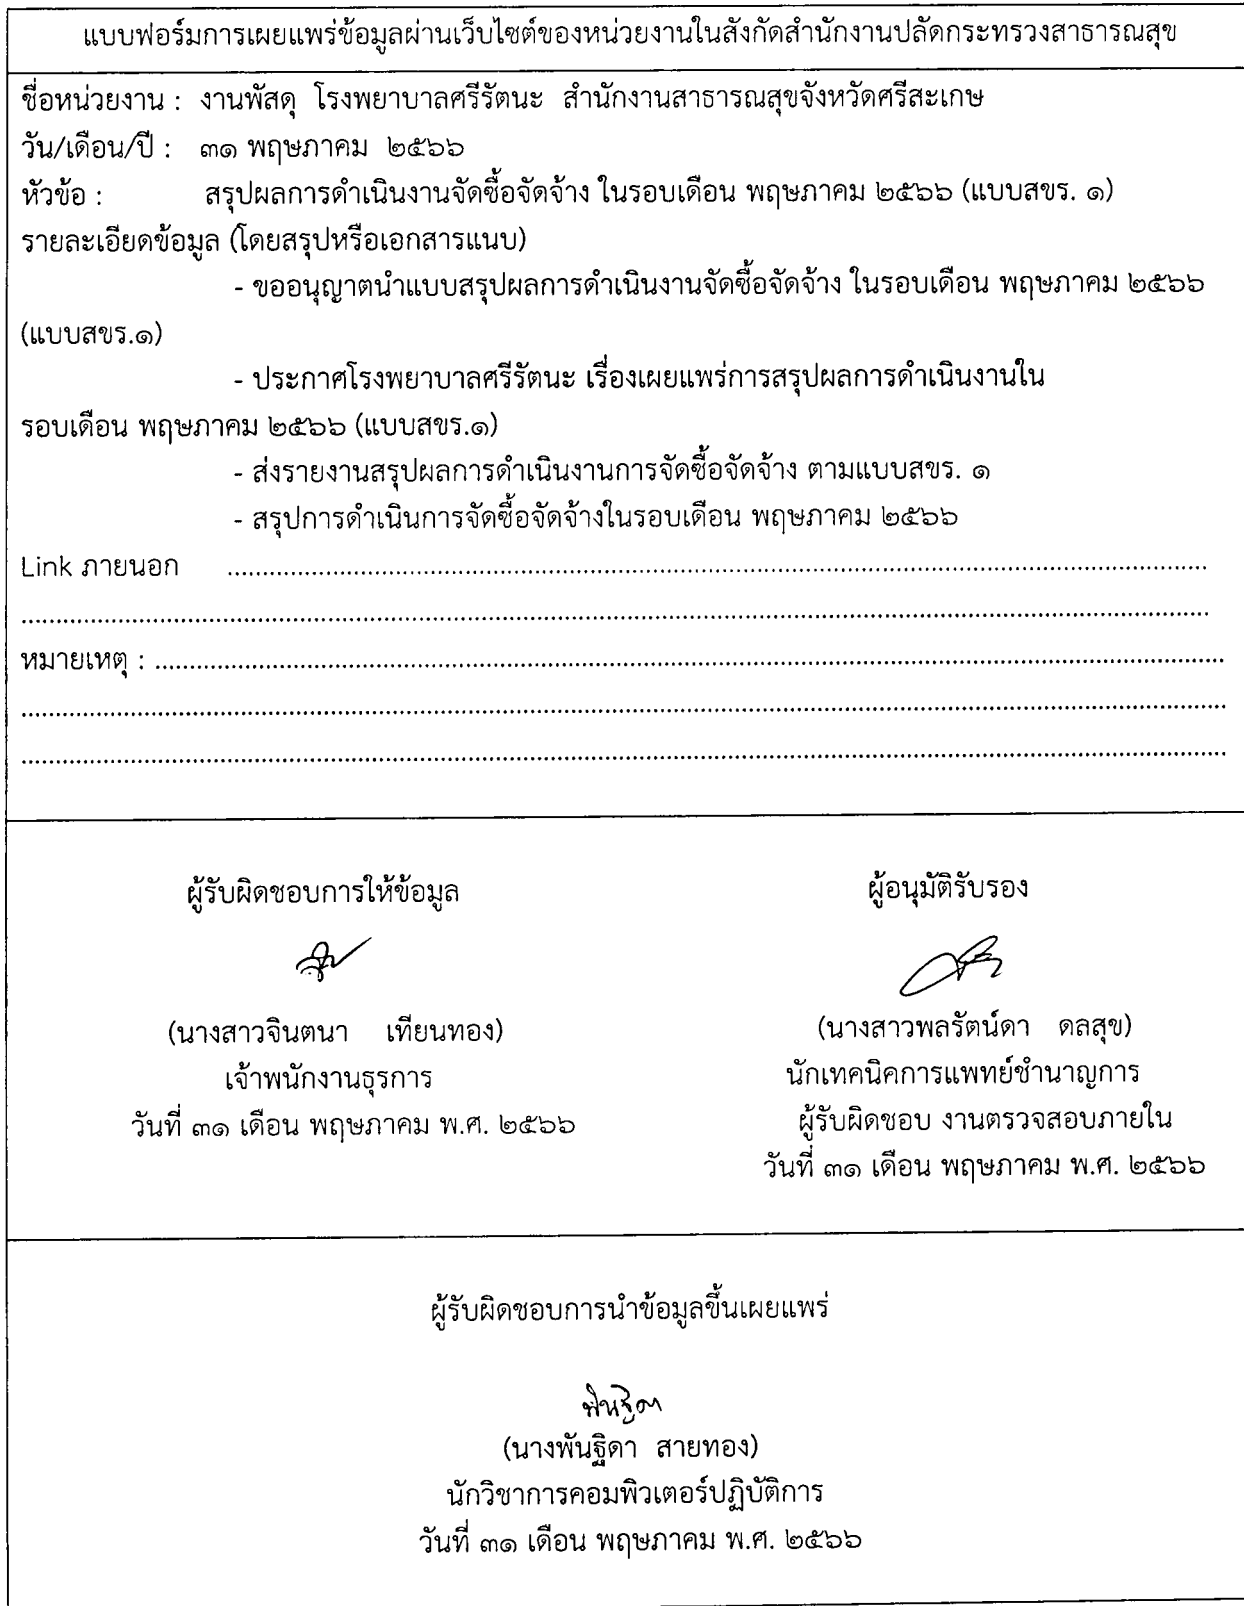 แบบฟอร์มการเผยแพร่ข้อมูลผ่านเว็บไซต์ของหน่วยงานในสังกัดสำนักงานปลัดกระทรวงสาธารณสุข
ชื่อหน่วยงาน : งานพัสดุ โรงพยาบาลศรีรัตนะ สำนักงานสาธารณสุขจังหวัดศรีสะเกษ
วัน/เดือน/ปี : ๓๑ พฤษภาคม ๒๕๖๖
หัวข้อ : สรุปผลการดำเนินงานจัดซื้อจัดจ้าง ในรอบเดือน พฤษภาคม ๒๕๖๖ (แบบสขร. ๑)
รายละเอียดข้อมูล (โดยสรุปหรือเอกสารแนบ)
- ขออนุญาตนำแบบสรุปผลการดำเนินงานจัดซื้อจัดจ้าง ในรอบเดือน พฤษภาคม ๒๕๖๖
(แบบสขร.๑)
- ประกาศโรงพยาบาลศรีรัตนะ เรื่องเผยแพร่การสรุปผลการดำเนินงานใน
รอบเดือน พฤษภาคม ๒๕๖๖ (แบบสขร.๑)
- ส่งรายงานสรุปผลการดำเนินงานการจัดซื้อจัดจ้าง ตามแบบสขร. ๑
- สรุปการดำเนินการจัดซื้อจัดจ้างในรอบเดือน พฤษภาคม ๒๕๖๖
Link ภายนอก ................................................................
................................................................
หมายเหตุ : ................................................................
................................................................
................................................................
ผู้รับผิดชอบการให้ข้อมูล
(นางสาวจินตนา เทียนทอง)
เจ้าพนักงานธุรการ
วันที่ ๓๑ เดือน พฤษภาคม พ.ศ. ๒๕๖๖
ผู้อนุมัติรับรอง
(นางสาวพลรัตน์ดา ดลสุข)
นักเทคนิคการแพทย์ชำนาญการ
ผู้รับผิดชอบ งานตรวจสอบภายใน
วันที่ ๓๑ เดือน พฤษภาคม พ.ศ. ๒๕๖๖
ผู้รับผิดชอบการนำข้อมูลขึ้นเผยแพร่
พันฐิดา
(นางพันฐิดา สายทอง)
นักวิชาการคอมพิวเตอร์ปฏิบัติการ
วันที่ ๓๑ เดือน พฤษภาคม พ.ศ. ๒๕๖๖